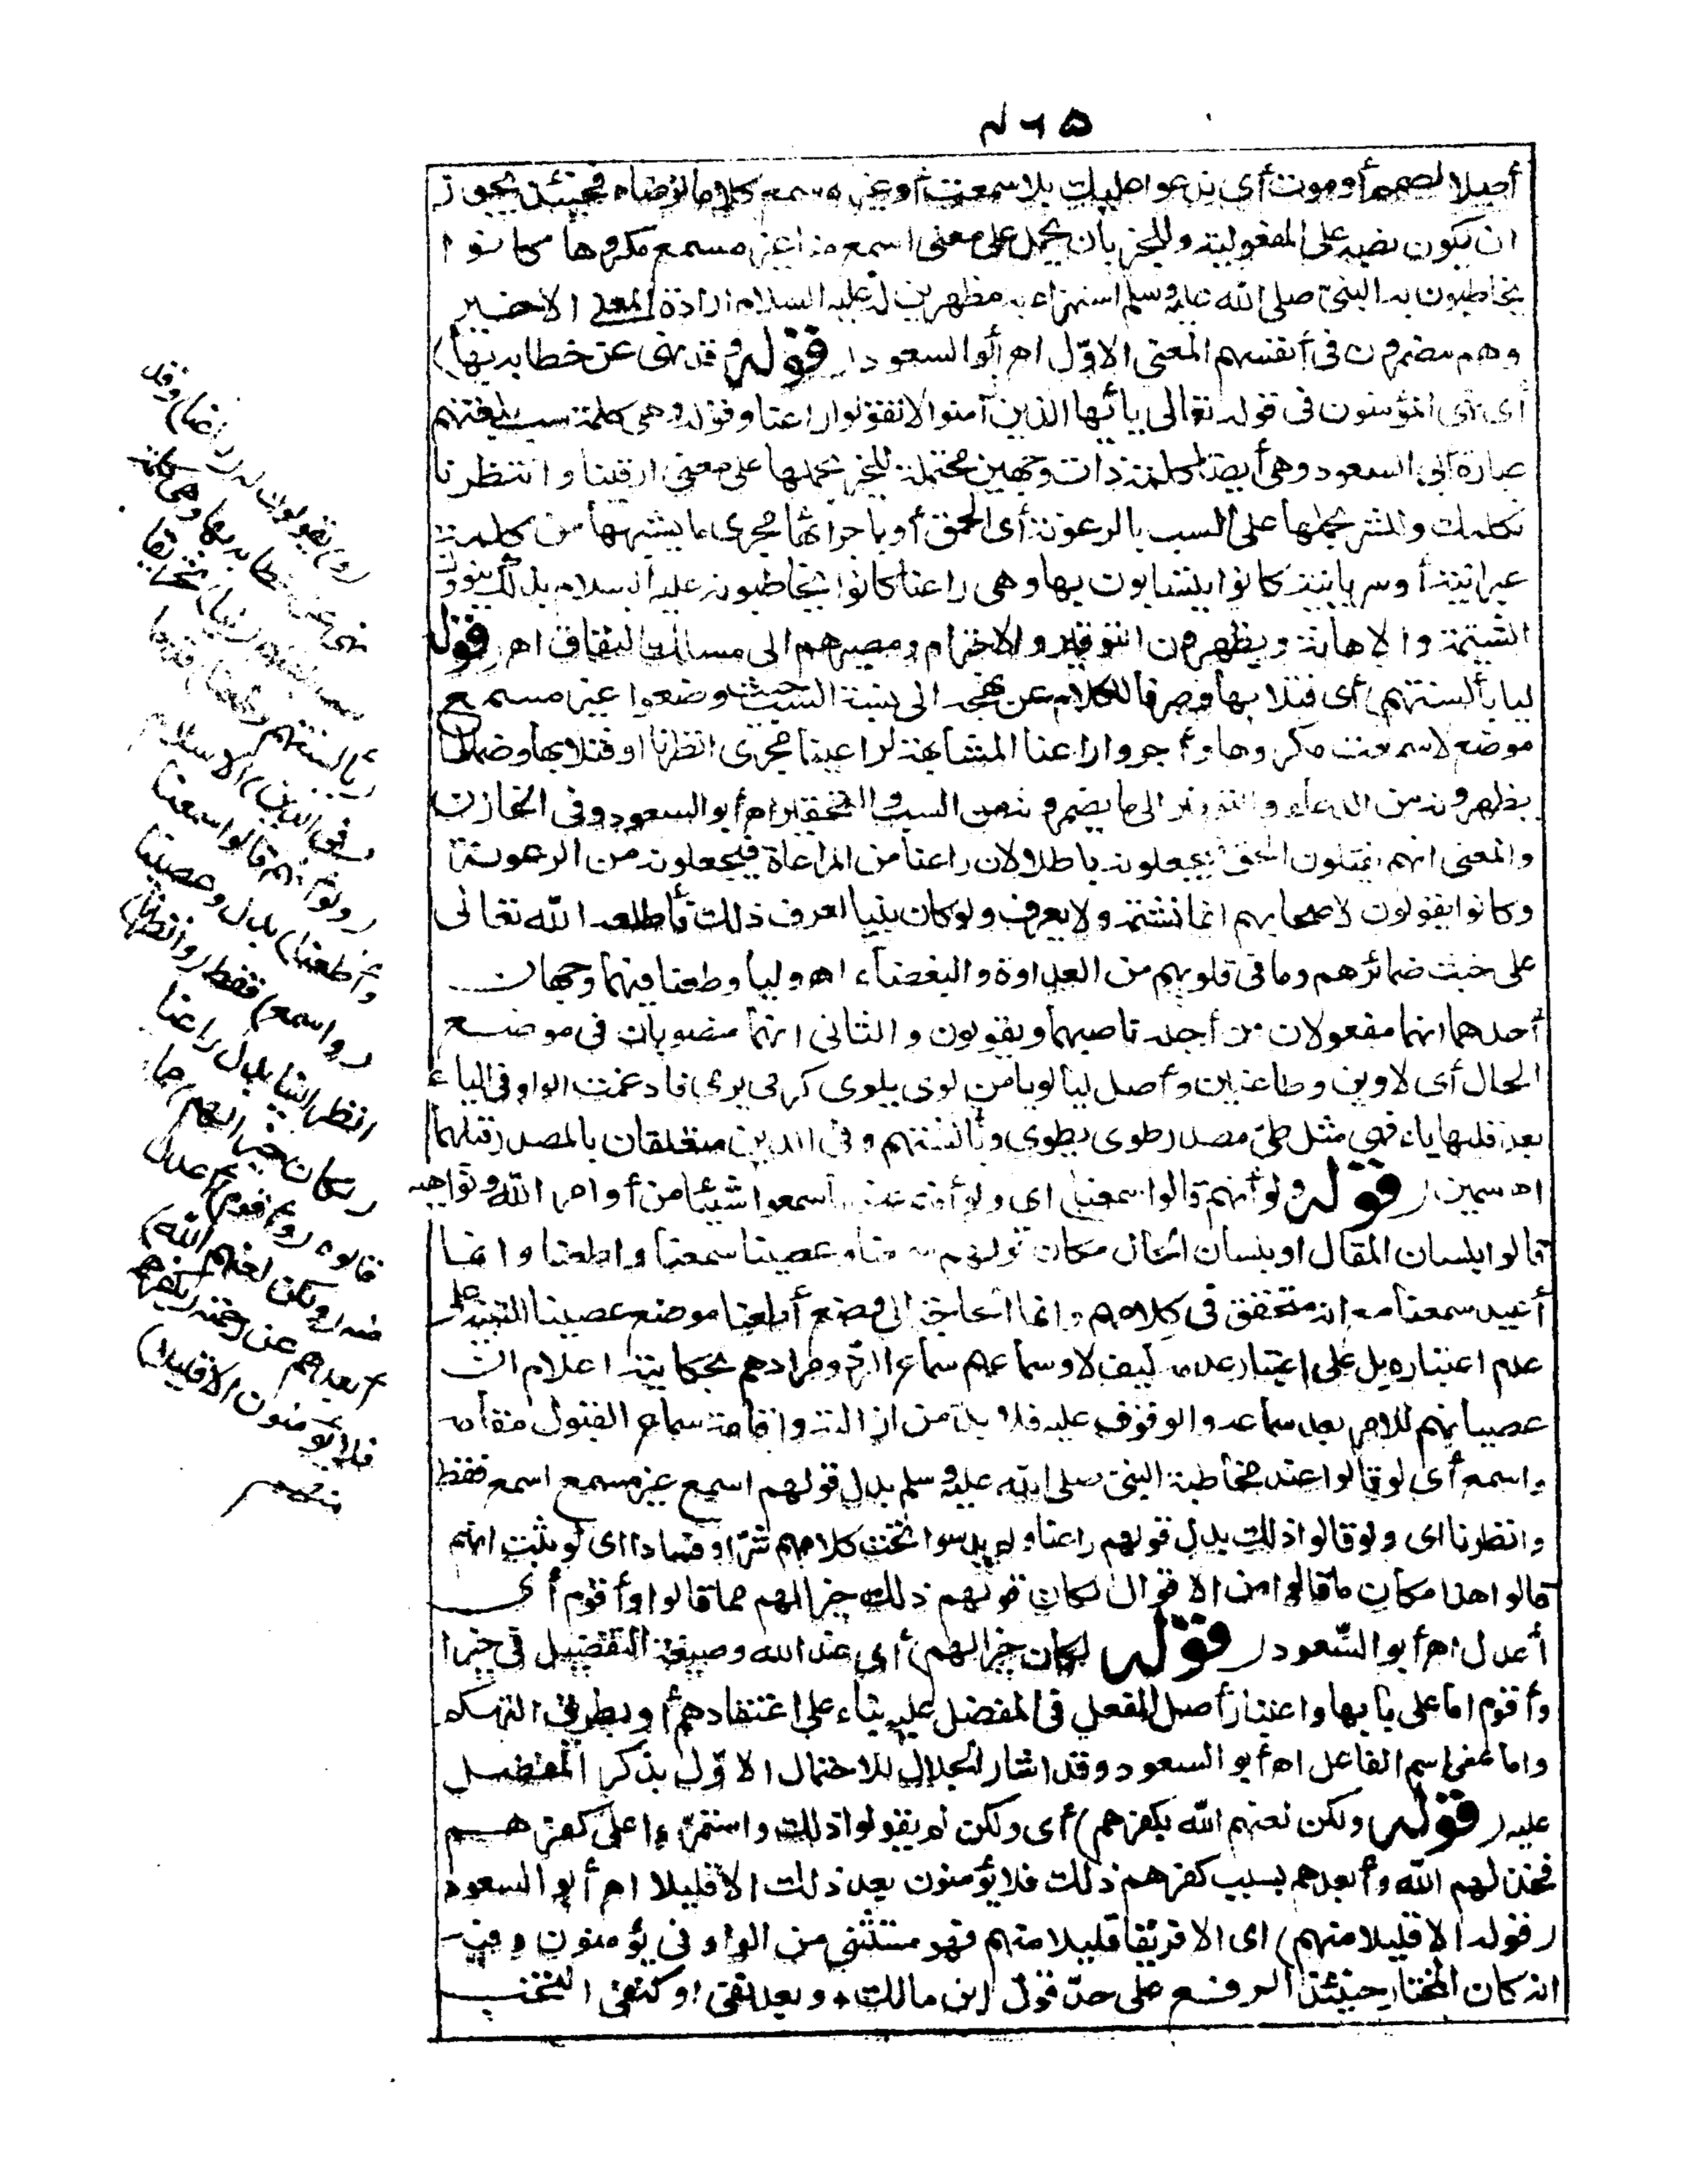 ٤٦٥
أصلا لصمم أو موت أى ندعو عليك بلا سمعت أو غير مسمع كلاما ترضاه فحينئذ يجوز
ان يكون نصبه على المفعولية وللخير بأن يحمل على معنى اسمع منا غير مسمع مكروها كانوا
يخاطبون به النبى صلى الله عليه وسلم استهزاء به مظهرين له عليه السلام ارادة المعنى الاخير
وهم مضمرون فى أنفسهم المعنى الاوّل اه أبو السعود (قوله وقد نهى عن خطابه بها)
أى نهى المؤمنون فى قوله تعالى يا أيها الذين آمنوا لا تقولوا راعنا وقوله وهى كلمة سب بلغتهم
عبارة أبى السعود وهى أيضا كلمة ذات وجهين محتملة للخير بحملها على معنى ارقبنا وانتظرنا
نكلمك وللشر بحملها على السب بالرعونة أى الحمق أو باجرائها مجرى ما يشبهها من كلمة
عبرانية أو سريانية كانوا يتسابون بها وهى راعنا كانوا يخاطبونه عليه السلام بذلك ينوون
الشتيمة والاهانة ويظهرون التوقير والاحترام ومصيرهم الى مسالك النفاق اه (قوله
ليا بألسنتهم) أى فتلا بها وصرفا للكلام عن نهجه الى نسبة السب حيث وضعوا غير مسمع
موضع لا سمعت مكروها وأجروا راعنا المشابهة لراعينا مجرى انظرنا أو فتلا بها وضما لما
يظهرونه من الدعاء والتوقير الى ما يضمرونه من السب والتحقير اه أبو السعود وفى الخازن
والمعنى انهم يفتلون الحق فيجعلونه باطلا لان راعنا من المراعاة فيجعلونه من الرعونة
وكانوا يقولون لاصحابهم انما نشتمه ولا يعرف ولو كان نبيا لعرف ذلك فأطلعه الله تعالى
على خبث ضمائرهم وما فى قلوبهم من العداوة والبغضاء اه وليا وطعنا فيهما وجهان
أحدهما انهما مفعولان من أجله ناصبهما ويقولون والثانى انهما منصوبان فى موضع
الحال أى لاوين وطاعنين وأصل ليا لويا من لوى يلوى كرمى يرمى فادغمت الواو فى الياء
بعد قلبها ياء فهى مثل طىّ مصدر طوى يطوى وبألسنتهم وفى الدين متعلقان بالمصدر قبلهما
اه سمين (قوله ولو أنهم قالوا سمعنا) أى ولو أنهم عند ما سمعوا شيئا من أوامر الله ونواهيه
قالوا بلسان المقال أو بلسان الحال مكان قولهم سمعنا وعصينا سمعنا وأطعنا وانما
أعيد سمعنا مع انه متحقق فى كلامهم وانما الحاجة الى وضع أطعنا موضع عصينا للتنبيه على
عدم اعتباره بل على اعتبار عدمه كيف لا وسماعهم سماع الردّ ومرادهم بحكايته اعلام ان
عصيانهم للامر بعد سماعه والوقوف عليه فلا بدّ من ازالته واقامة سماع القبول مقامه
واسمع أى لو قالوا عند مخاطبة النبى صلى الله عليه وسلم بدل قولهم اسمع غير مسمع اسمع فقط
وانظرنا أى ولو قالوا ذلك بدل قولهم راعنا ولم يدسوا تحت كلامهم شرّا وفسادا أى لو ثبت انهم
قالوا هذا مكان ما قالوا من الاقوال لكان قولهم ذلك خيرا لهم مما قالوا وأقوم أى
أعدل اه أبو السّعود (قوله لكان خيرا لهم) أى عند الله وصيغة التفضيل فى خيرا
وأقوم اما على بابها واعتبار أصل الفعل فى المفضل عليه بناء على اعتقادهم أو بطريق التهكم
واما بمعنى اسم الفاعل اه أبو السعود وقد اشار الجلال للاحتمال الاوّل بذكر المفضل
عليه (قوله ولكن لعنهم الله بكفرهم) أى ولكن لم يقولوا ذلك واستمرّوا على كفرهم
فخذلهم الله وأبعدهم بسبب كفرهم ذلك فلا يؤمنون بعد ذلك الا قليلا اه أبو السعود
(قوله الا قليلا منهم) أى الا فريقا قليلا منهم فهو مستثنى من الواو فى يؤمنون وفيه
انه كان المختار حينئذ الرفع على حدّ قول ابن مالك * وبعد نفى أو كنفى انتخب
(و) يقولون له (راعنا) وقد
نهى عن خطابه بها وهى كلمة
سب بلغتهم (ليا) تحريفا
(بألسنتهم وطعنا) قدحا
(فى الدين) الاسلام
(ولو أنهم قالوا سمعنا
وأطعنا) بدل وعصينا
(واسمع) فقط (وانظرنا)
انظر الينا بدل راعنا
(لكان خيرا لهم) مما
قالوه (وأقوم) أعدل
منه (ولكن لعنهم الله)
أبعدهم عن رحمته (بكفرهم
فلا يؤمنون الا قليلا)
منهم